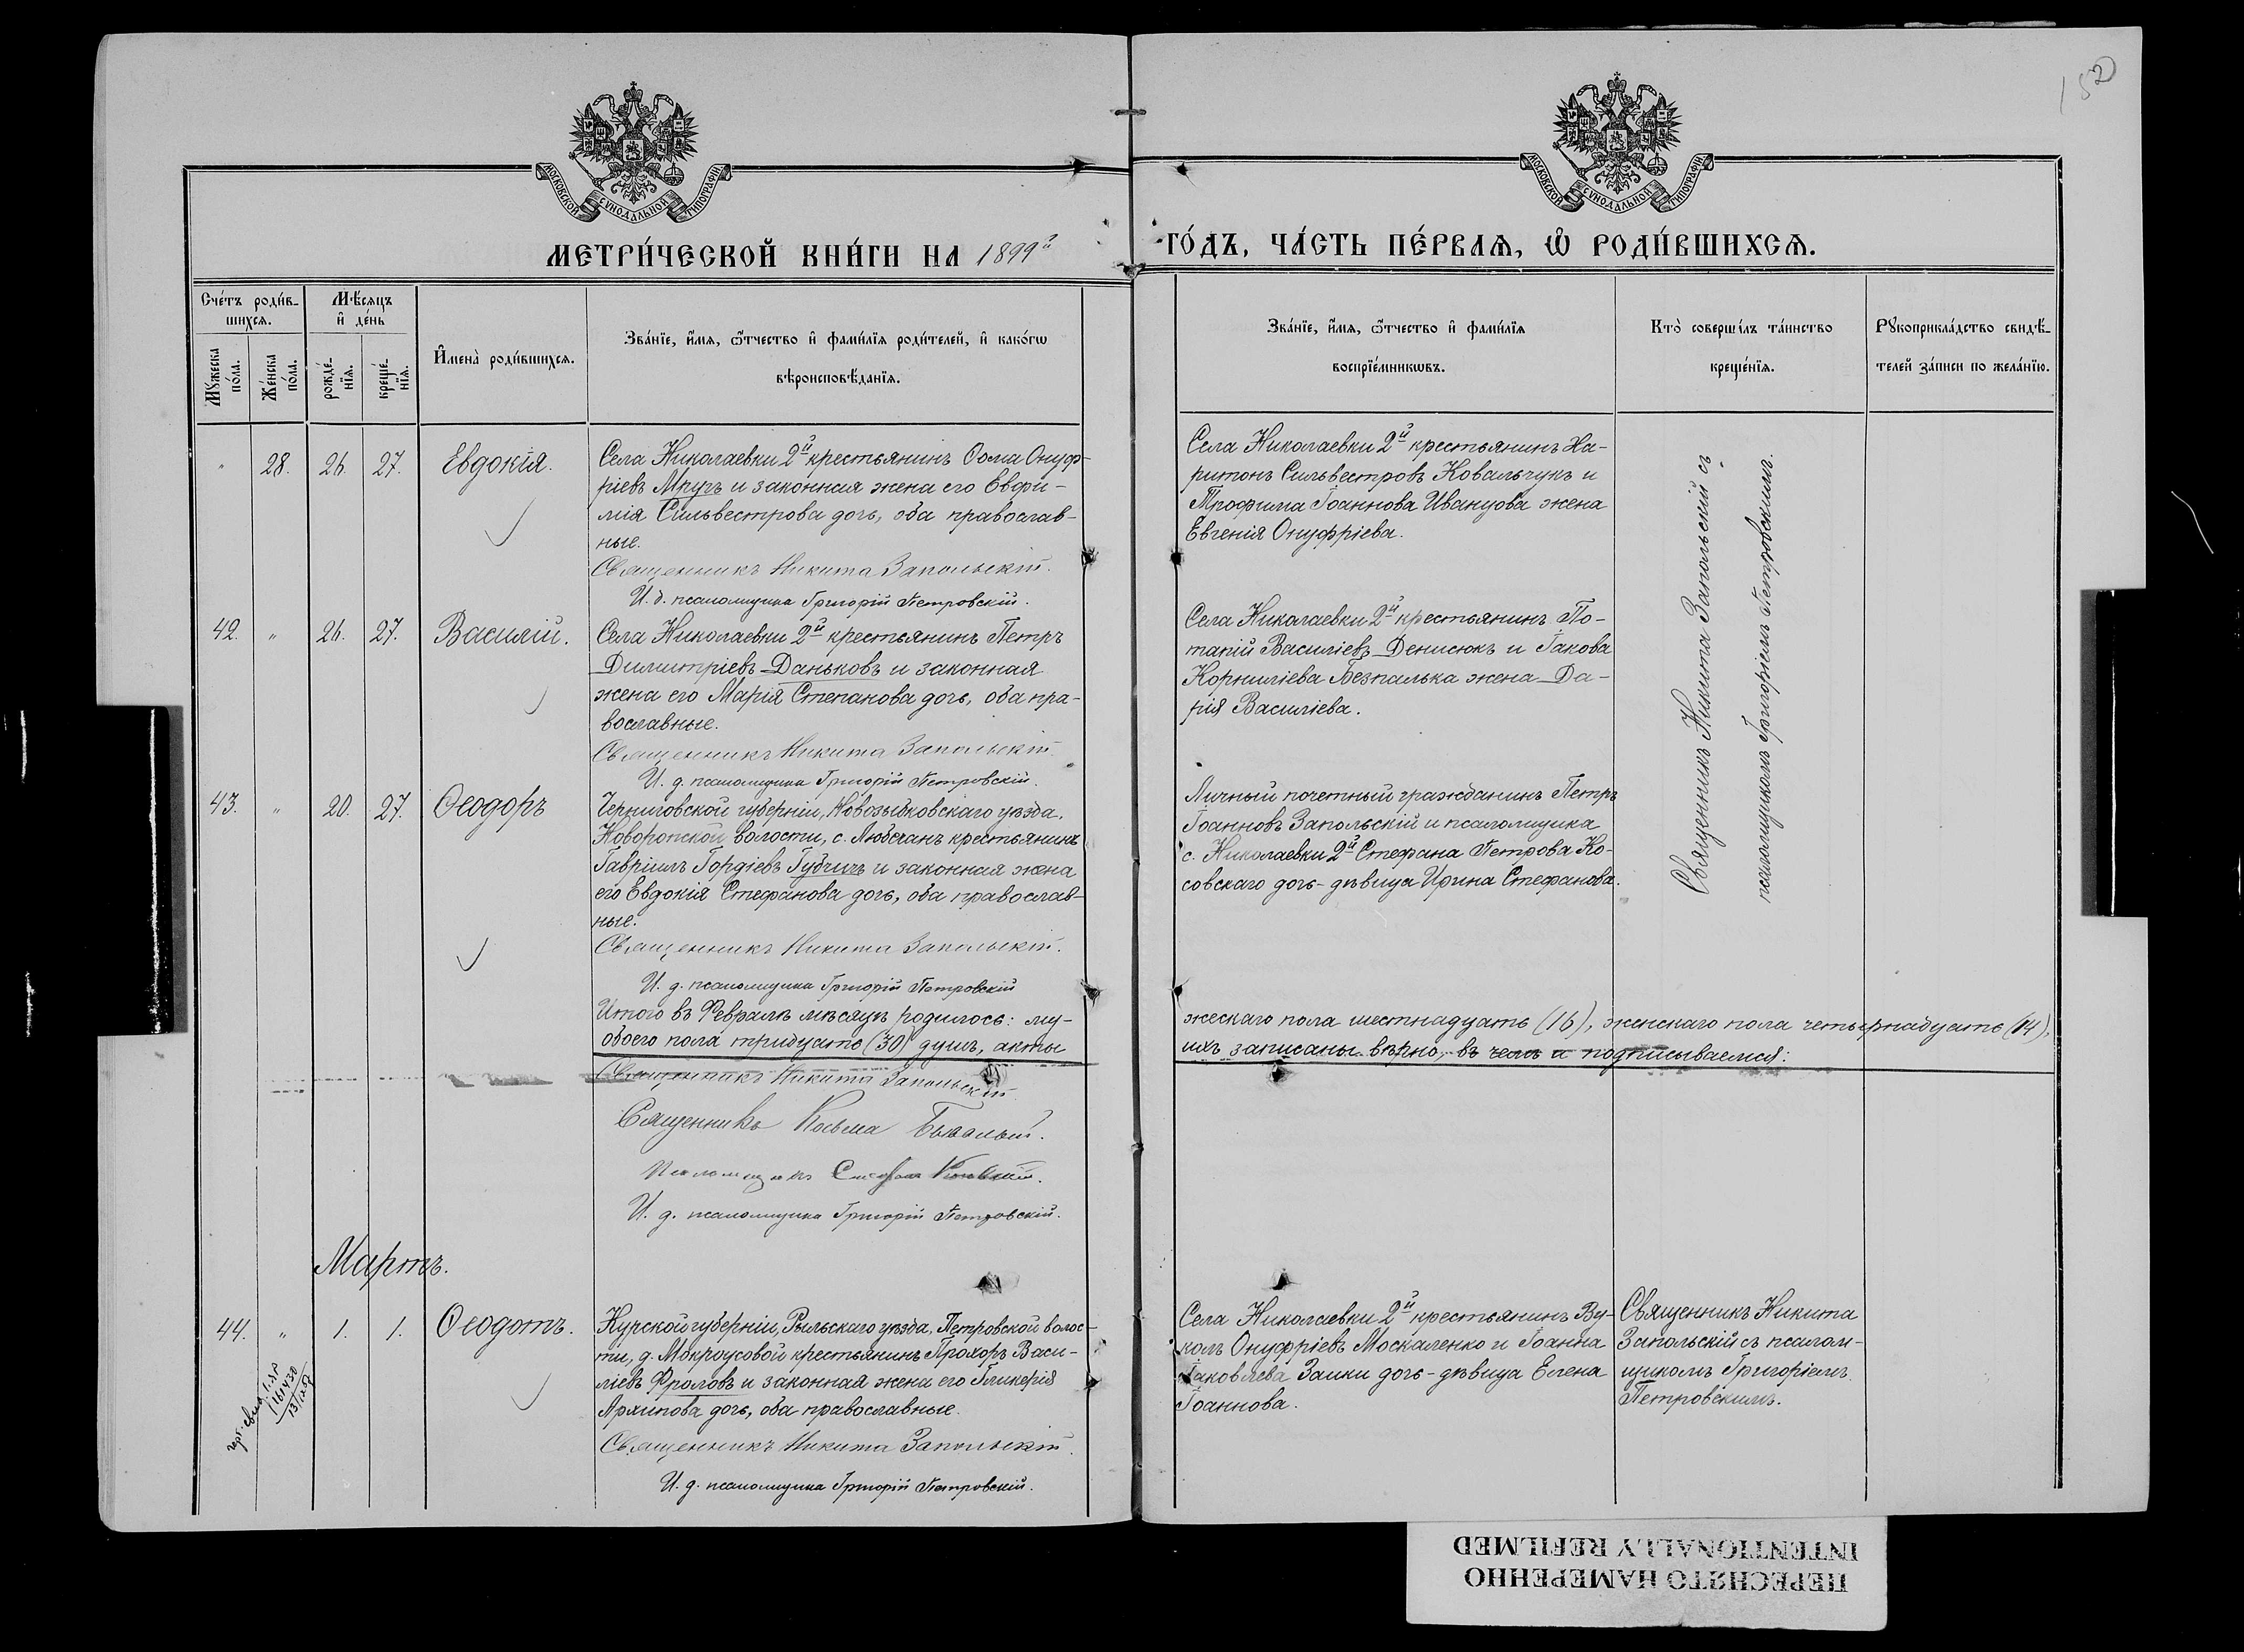 152
МОСКОВСКОЙ СѴНОДАЛЬНОЙ ТИПОГРАФІИ
МОСКОВСКОЙ СѴНОДАЛЬНОЙ ТИПОГРАФІИ
МЕТРИ́ЧЕСКОЙ КНИ́ГИ НА 1899й
ГО́ДЪ, ЧА́СТЬ ПЕ́РВАѦ, Ѽ РОДИ́ВШИХСѦ.
Сче́тъ роди́в-
шихсѧ.
Мѣ́сѧцъ
и҆ де́нь
Мꙋ́жеска
по́ла.
Же́нска
по́ла.
рожде́-
нїѧ.
креще́-
нїѧ.
И҆мена̀ роди́вшихсѧ.
Зва́нїе, и҆́мѧ, ѻ҆́тчество и҆ фами́лїѧ роди́телей, и҆ како́гѡ
вѣроисповѣ́данїѧ.
Зва́нїе, и҆́мѧ, ѻ҆́тчество и҆ фами́лїѧ
воспрїе́мникѡвъ.
Кто̀ соверши́лъ та́инство
креще́нїѧ.
Рꙋкоприкла́дство свидѣ́-
телей за́писи по жела́нїю.
" 28. 26. 27. Евдокія.
Села Николаевки 2й крестьянинъ Ѳома Онуф-
ріевъ Мпугъ и законная жена его Евфи-
мія Сильвестрова дочь, оба православ-
ные.
Священникъ Никита Запольскій.
И. д. псаломщика Григорій Петровскій.
Села Николаевки 2й крестьянинъ Ха-
ритонъ Сильвестровъ Ковальчукъ и
Трофима Іоаннова Иванцова жена
Евгенія Онуфріева.
Священникъ Никита Запольскій съ
псаломщикомъ Григоріемъ Петровскимъ.
42. " 26. 27. Василій.
Села Николаевки 2й крестьянинъ Петръ
Димитріевъ Даньковъ и законная
жена его Марія Степанова дочь, оба пра-
вославные.
Священникъ Никита Запольскій
И. д. псаломщика Григорій Петровскій.
Села Николаевки 2й крестьянинъ По-
тапій Василіевъ Денисюкъ и Іакова
Корниліева Безпалька жена Да-
рія Василіева.
43. " 20. 27. Ѳеодоръ
Черниговской губерніи, Новозыбковскаго уѣзда,
Новоропской волости, с. Любечанъ крестьянинъ
Гавріилъ Гордіевъ Губчичъ и законная жена
его Евдокія Стефанова дочь, оба православ-
ные.
Священникъ Никита Запольскій.
И. д. псаломщика Григорій Петровскій
Личный почетный гражданинъ Петръ
Іоанновъ Запольскій и псаломщика
с. Николаевки 2й Стефана Петрова Ко-
совскаго дочь-дѣвица Ирина Стефанова.
Итого въ Февралѣ мѣсяцѣ родилось: му-
жескаго пола шестнадцать (16), женскаго пола четырнадцать (14),
обоего пола тридцать (30) душъ, акты
ихъ записаны вѣрно, въ чемъ и подписываемся:
Священникъ Никита Запольскій
Священникъ Косьма
Псаломщикъ Стефанъ
И. д. псаломщика Григорій Петровскій.
Мартъ.
44. " 1. 1. Ѳеодотъ.
Курской губерніи, Рыльскаго уѣзда, Петровской волос-
ти, д. Мокроусовой крестьянинъ Прохоръ Васи-
ліевъ Фроловъ и законная жена его Гликерія
Архипова дочь, оба православные.
Священникъ Никита Запольскій.
И. д. псаломщика Григорій Петровскій.
Села Николаевки 2й крестьянинъ Ву-
колъ Онуфріевъ Москаленко и Іоанна
Іаковлева Заики дочь-дѣвица Елена
Іоаннова.
Священникъ Никита
Запольскій съ псалом-
щикомъ Григоріемъ
Петровскимъ.
ПЕРЕСНЯТО НАМЕРЕННО
INTENTIONALLY REFILMED